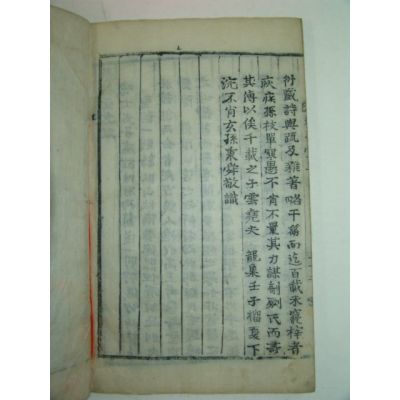 衍盛詩與疏及雜著略干篇而迄百載未寢梓者
疾孫枝單窮愚不肖不量其力謀剞劂氏而壽
其傳以俟千載之子雲堯夫 龍集壬子榴夏下
浣不肖玄孫秉舜敬識